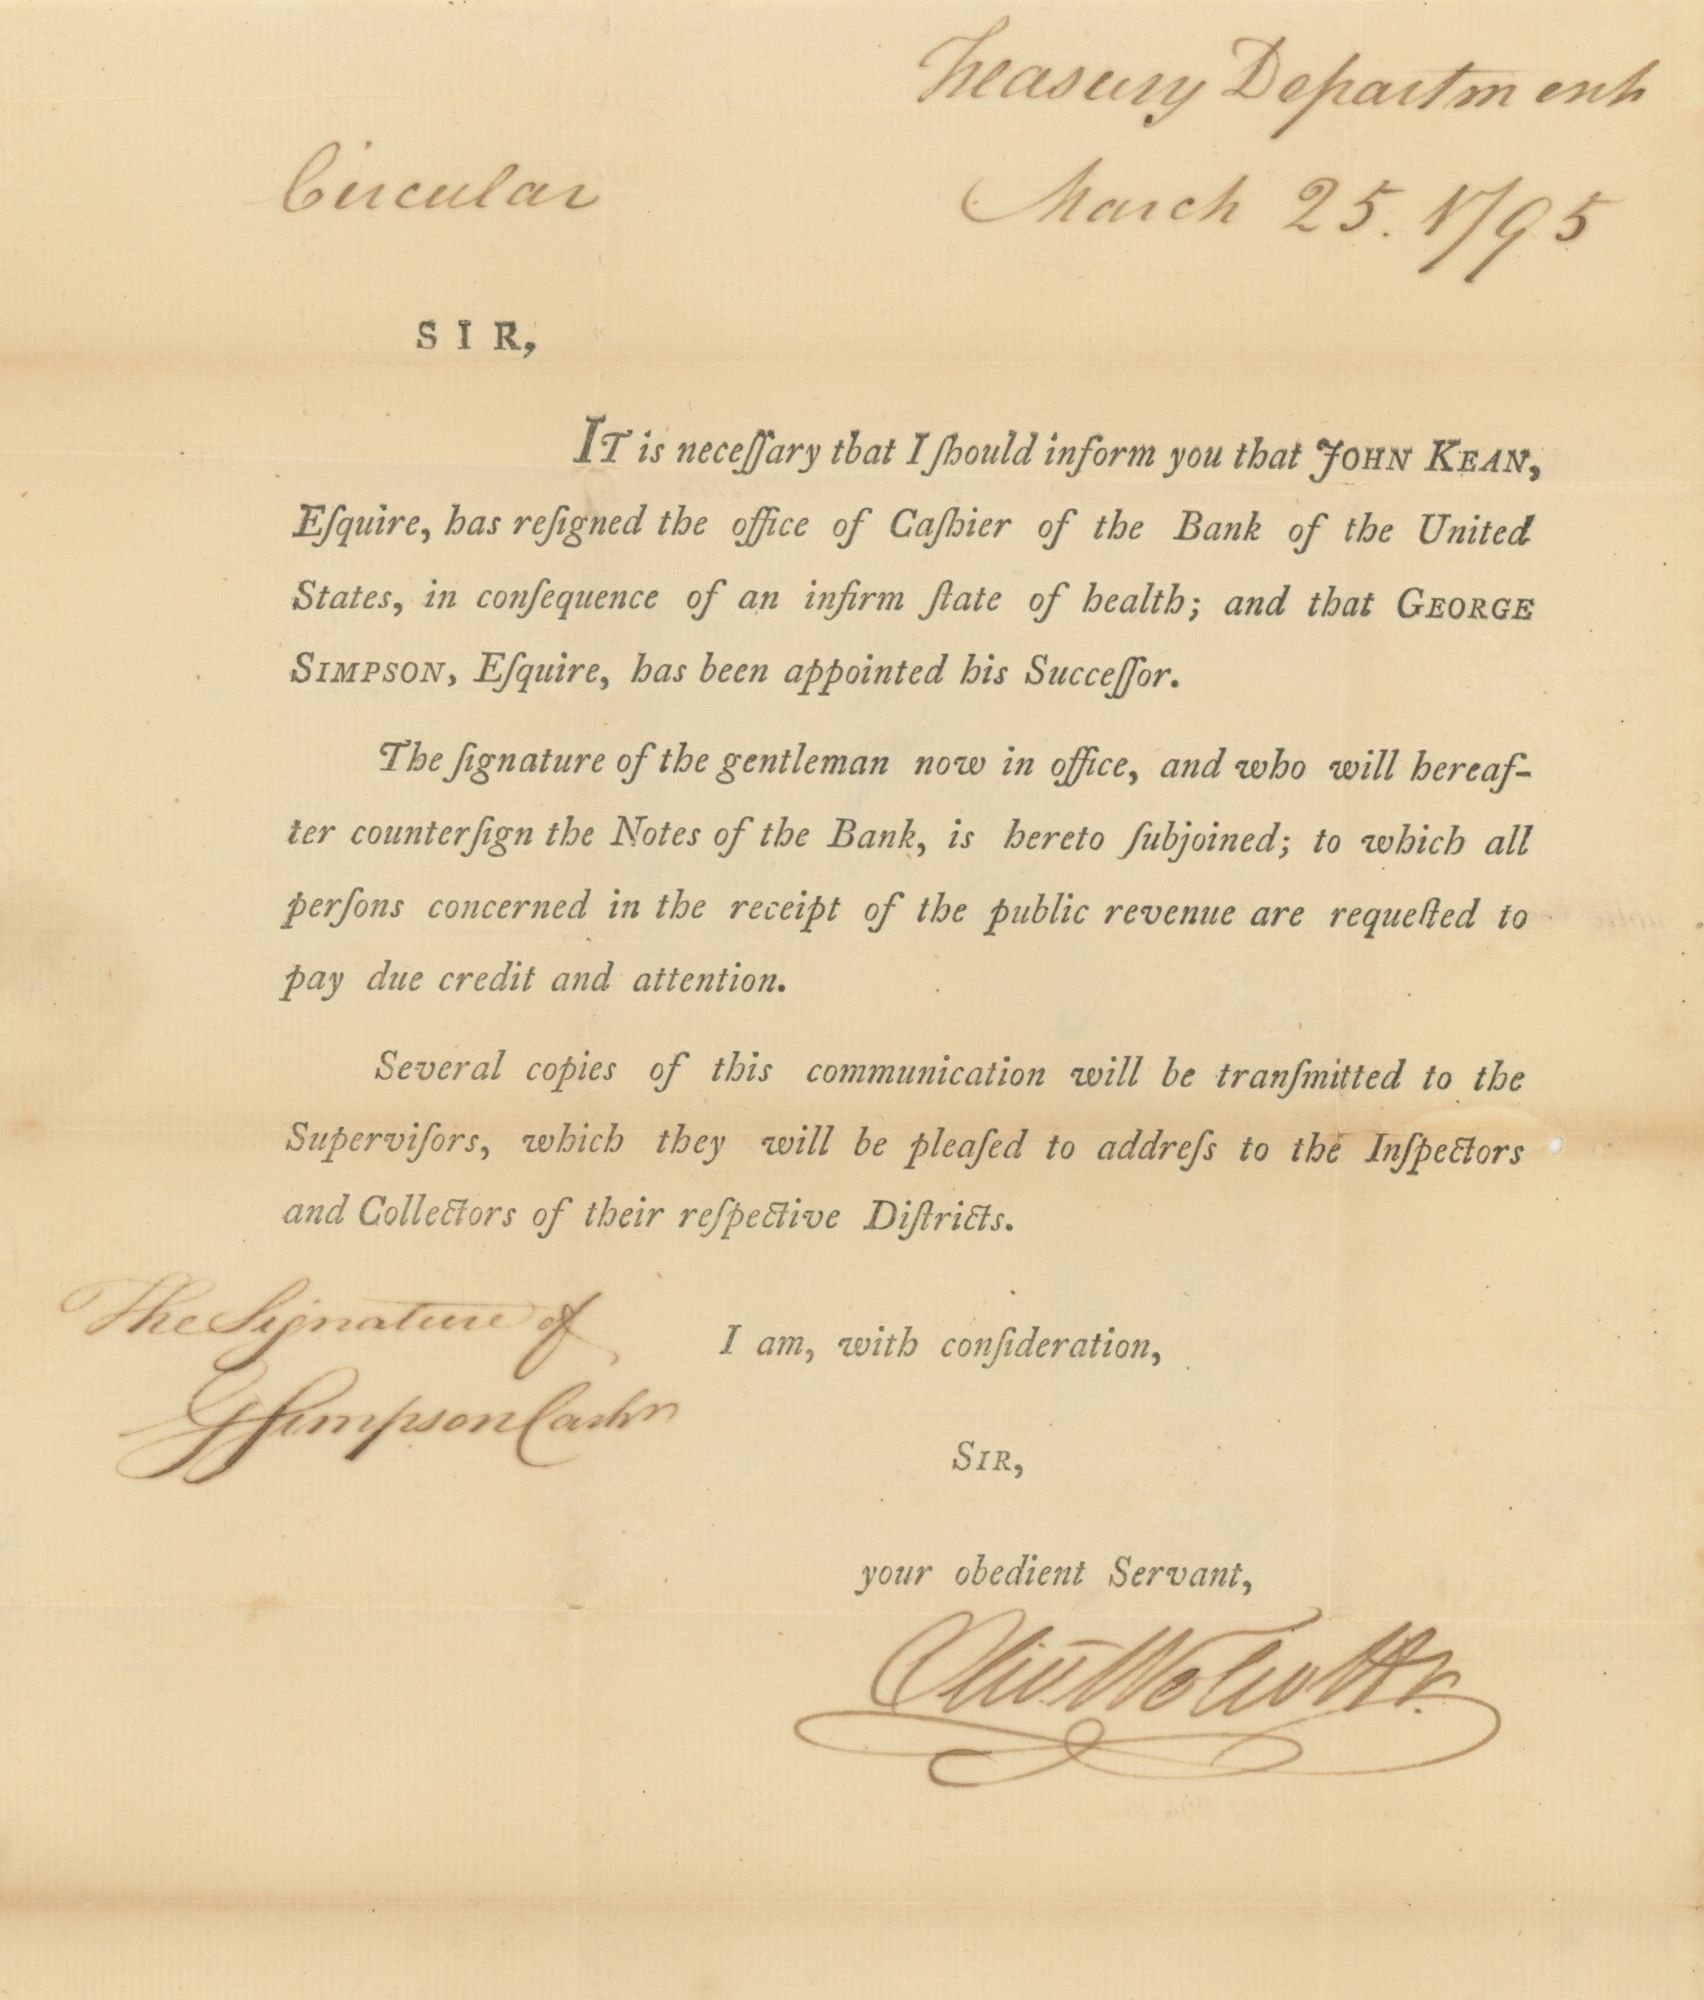 Treasury Department
Circular
March 25. 1795
SIR,
IT is neceſſary that I ſhould inform you that JOHN KEAN,
Eſquire, has reſigned the office of Caſhier of the Bank of the United
States, in conſequence of an infirm ſtate of health; and that GEORGE
SIMPSON, Eſquire, has been appointed his Succeſſor.
The ſignature of the gentleman now in office, and who will hereaf-
ter counterſign the Notes of the Bank, is hereto ſubjoined; to which all
perſons concerned in the receipt of the public revenue are requeſted to
pay due credit and attention.
Several copies of this communication will be tranſmitted to the
Superviſors, which they will be pleaſed to addreſs to the Inſpectors
and Collectors of their reſpective Diſtricts.
The Signature of
I am, with conſideration,
G Simpson Cashr
SIR,
your obedient Servant,
Oliv Wolcott Jr.